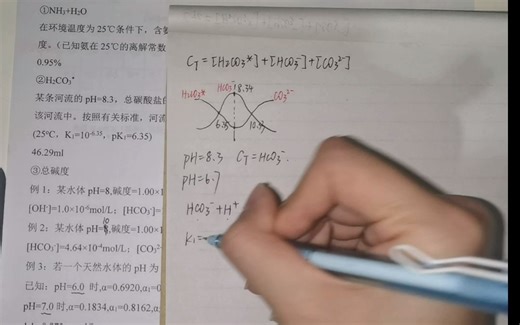 ①NH₃+H₂O
在环境温度为25℃条件下，含氨
度。（已知氨在25℃的离解常数
0.95%
②H₂CO₃*
某条河流的pH=8.3，总碳酸盐的
该河流中。按照有关标准，河流
(25℃, K₁=10⁻⁶·³⁵, pK₁=6.35)
46.29ml
③总碱度
例 1：某水体 pH=8,碱度=1.00×1
[OH⁻]=1.0×10⁻⁶mol/L；[HCO₃⁻]=
例 2：某水体 pH=10,碱度=1.00×1
[HCO₃⁻]=4.64×10⁻⁴mol/L；[CO₃²⁻
例 3：若一个天然水体的 pH 为
已知：pH=6.0 时,α=0.6920, α₁=0
pH=7.0 时,α=0.1834, α₁=0.8162, α₂
C_T=[H₂CO₃*]+[HCO₃⁻]+[CO₃²⁻]
HCO₃⁻ 8.34
H₂CO₃* CO₃²⁻
6.35 10.33
pH=8.3 C_T=HCO₃⁻.
pH=6.7
HCO₃⁻+H⁺
K₁=